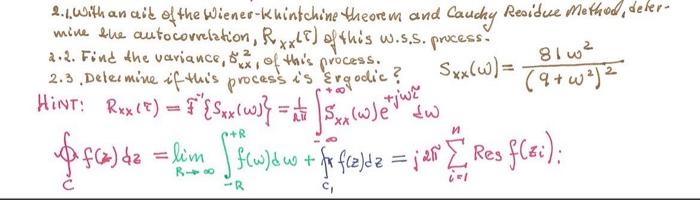 2.1. With an aid of the Wiener-Khintchine theorem and Cauchy Residue Method, deter-
mine the autocorrelation, Rxx(τ) of this w.s.s. process.
2.2. Find the variance, σ²xx, of this process.
2.3. Determine if this process is Ergodic? Sxx(ω) = 81ω² / (9+ω²)²
HINT: Rxx(τ) = F⁻¹{Sxx(ω)} = 1/2π ∫_{-∞}^{+∞} Sxx(ω)e^{+jωτ} dω
∮_C f(z)dz = lim_{R→∞} ∫_{-R}^{+R} f(ω)dω + ∮_{C₁} f(z)dz = j2π Σ_{i=1}^{n} Res f(zi);